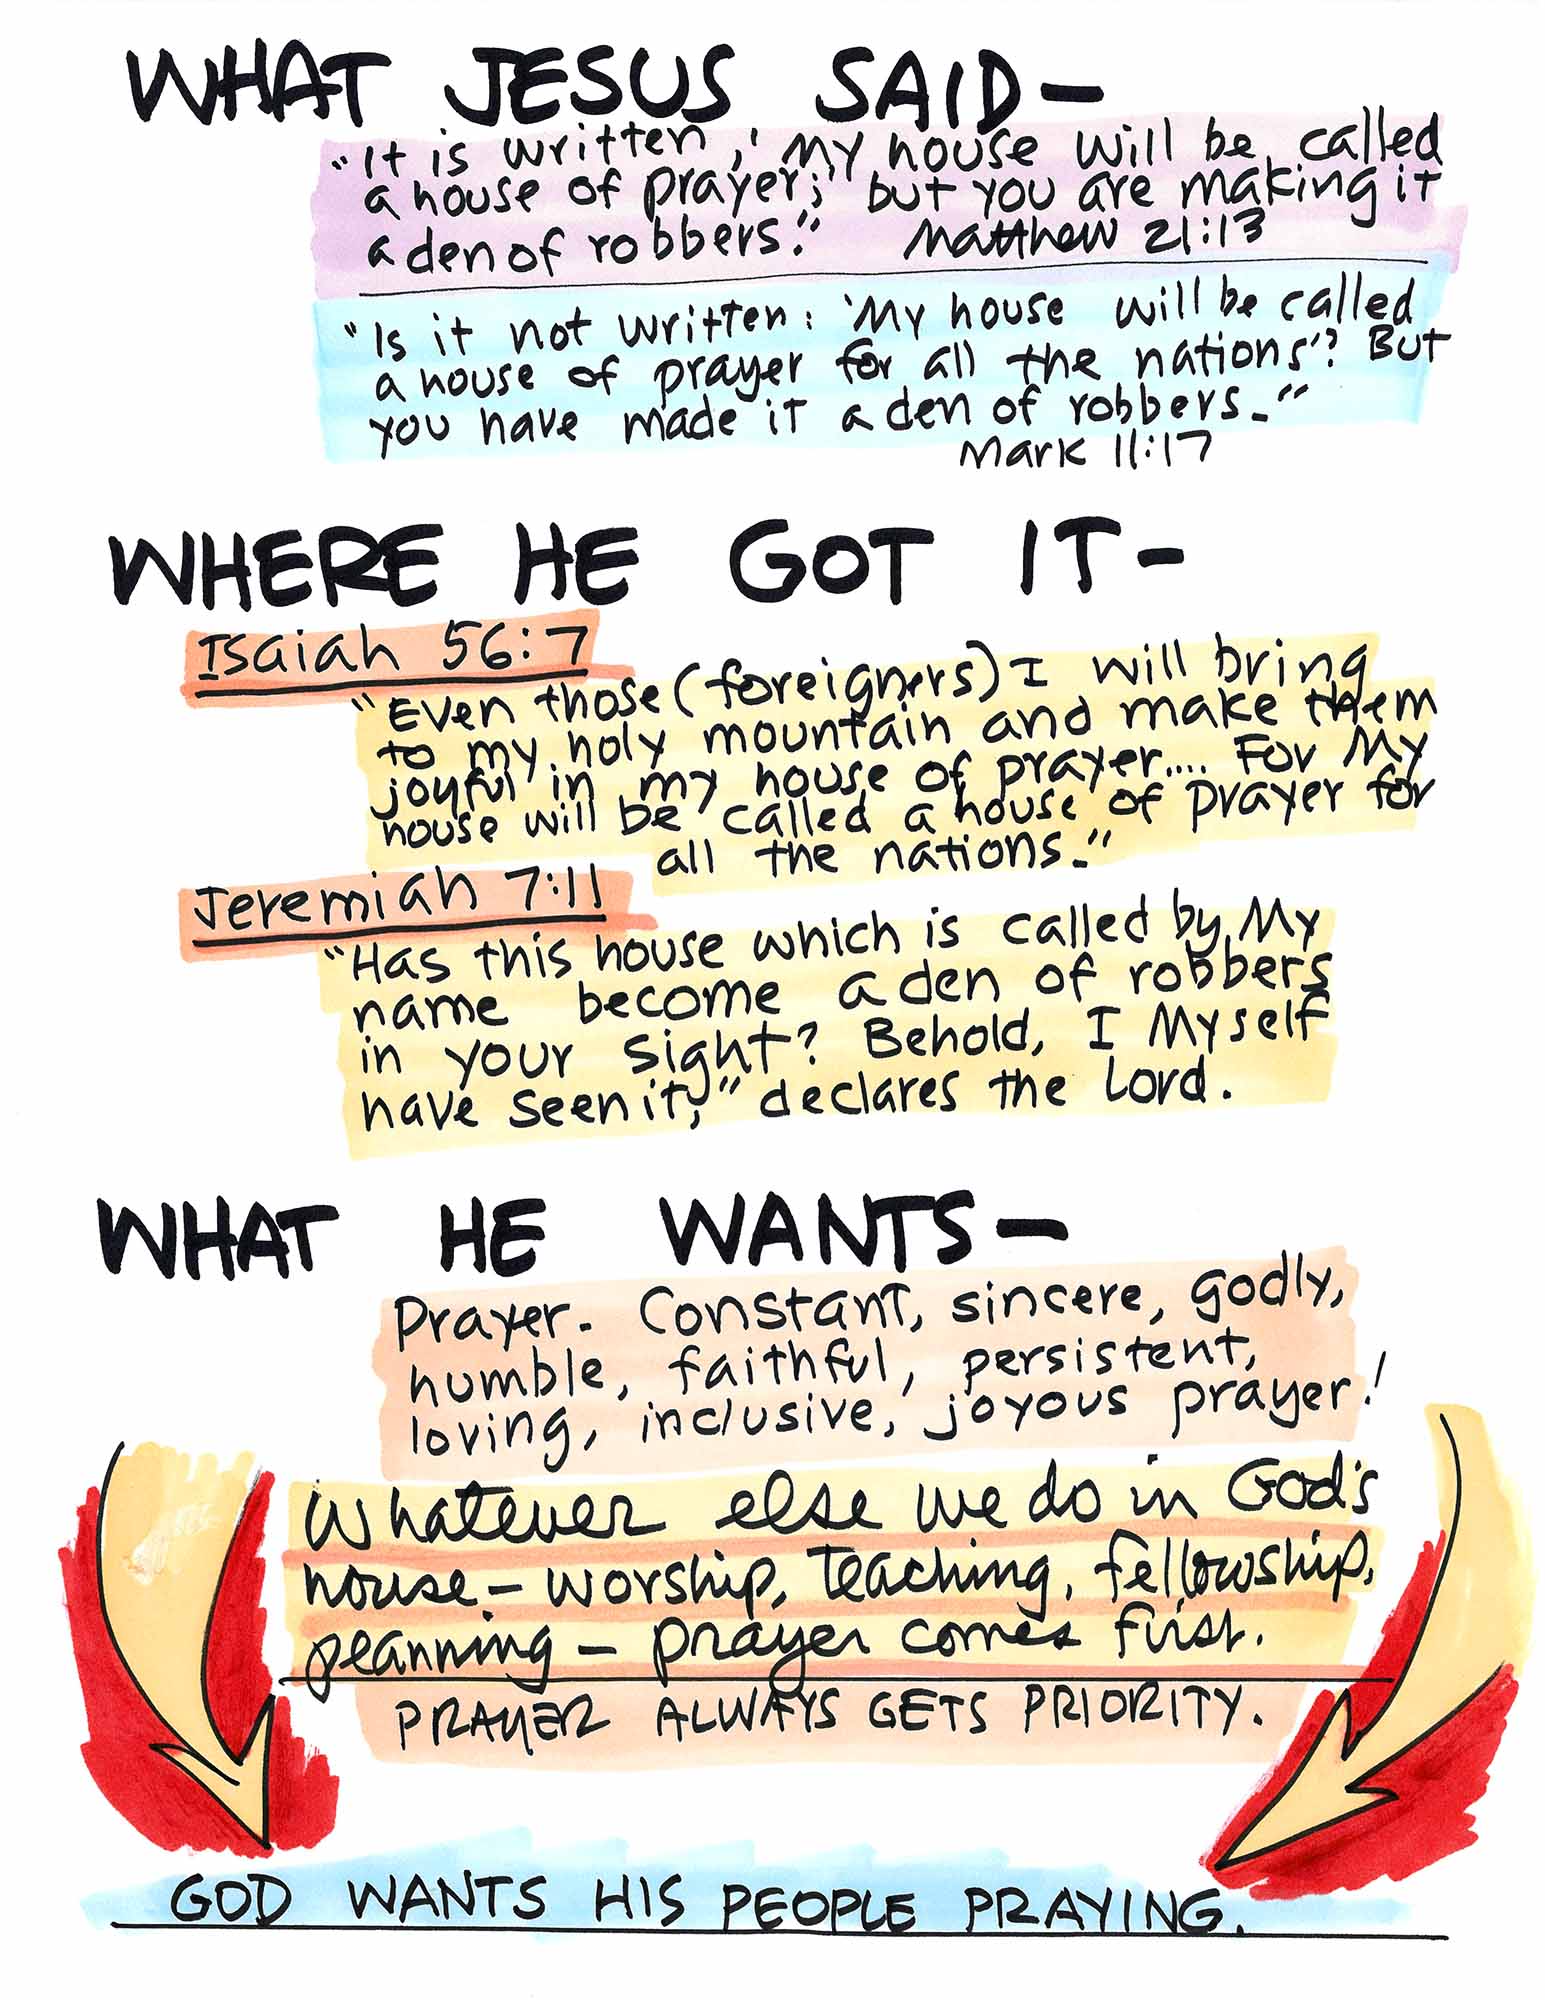 WHAT JESUS SAID—
"It is written, 'My house will be called
a house of prayer;' but you are making it
a den of robbers." Matthew 21:13
"Is it not written: 'My house will be called
a house of prayer for all the nations'? But
you have made it a den of robbers."
Mark 11:17
WHERE HE GOT IT—
Isaiah 56:7
"Even those (foreigners) I will bring
to my holy mountain and make them
joyful in my house of prayer.... For My
house will be called a house of prayer for
all the nations."
Jeremiah 7:11
"Has this house which is called by My
name become a den of robbers
in your sight? Behold, I Myself
have seen it," declares the Lord.
WHAT HE WANTS—
Prayer. Constant, sincere, godly,
humble, faithful, persistent,
loving, inclusive, joyous prayer!
Whatever else we do in God's
house — worship, teaching, fellowship,
planning — prayer comes first.
PRAYER ALWAYS GETS PRIORITY.
GOD WANTS HIS PEOPLE PRAYING.